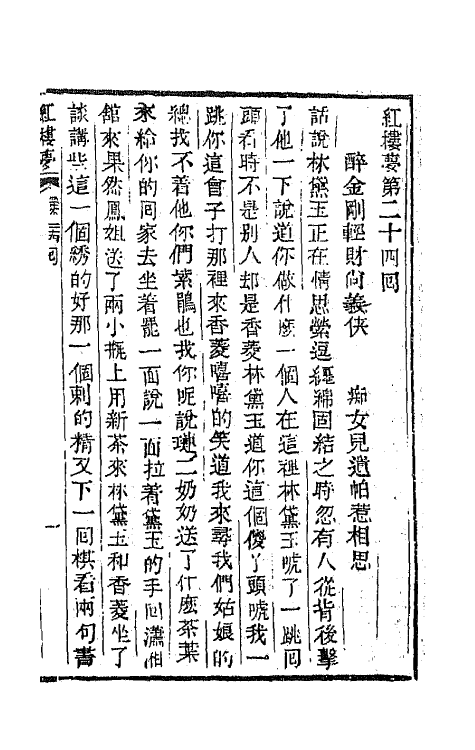 紅樓夢第二十四回
醉金剛輕財尚義俠　痴女兒遺帕惹相思
話說林黛玉正在情思縈逗纏綿固結之時忽有人從背後擊
了他一下說道你做什麽一個人在這裡林黛玉唬了一跳回
頭看時不是别人却是香菱林黛玉道你這個傻丫頭唬我一
跳你這會子打那裡來香菱嘻嘻的笑道我來尋我們姑娘的
總我不着他你們紫鵑也找你呢說璉二奶奶送了什麽茶葉
來給你的回家去坐着罷一面說一面拉着黛玉的手回瀟湘
館來果然鳳姐送了兩小瓶上用新茶來林黛玉和香菱坐了
談講些這一個綉的好那一個刺的精又下一回棋看兩句書
紅樓夢　第二四回　一